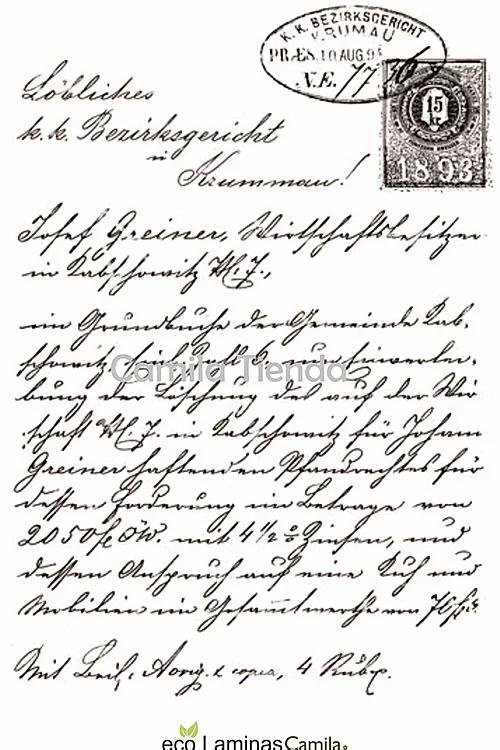 K. K. BEZIRKSGERICHT
KRUMAU
PRÆS. 10 AUG. 9
N.E. 77 36
15
kr.
1893
Löbliches
k. k. Bezirksgericht
in
Krummau!
Josef Greiner, Wirthschaftsbesitzer
in Kabschowitz N. 7.,
im Grundbuche der Gemeinde Kab-
schowitz um Einverlei-
bung der Löschung des auf der Wir
schaft N. 7. in Kabschowitz für Johann
Greiner haftenden Pfandrechtes für
dessen Forderung im Betrage von
2050 fl öW. mit 4 1/2 % Zinsen, und
dessen Anspruch auf eine Kuh und
Mobilien im Gesammtwerthe von
Mit Beil. copia, 4 Rubr.
Camila Tienda
eco LaminasCamila